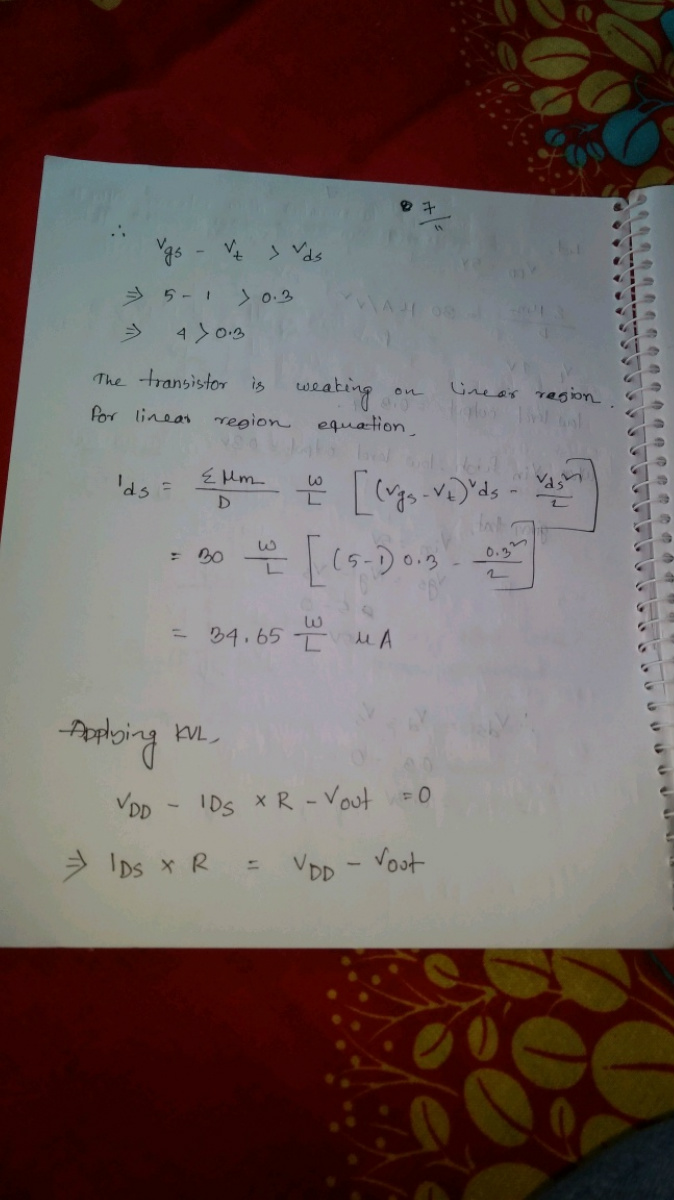 7
∴
Vgs - Vt > Vds
⇒ 5 - 1 > 0.3
⇒ 4 > 0.3
The transistor is weaking on linear region.
For linear region equation,
Ids = Σμm/D W/L [(Vgs - Vt) Vds - Vds²/2]
= 30 W/L [(5-1) 0.3 - 0.3²/2]
= 34.65 W/L μA
Applying KVL,
VDD - IDS × R - Vout = 0
⇒ IDS × R = VDD - Vout